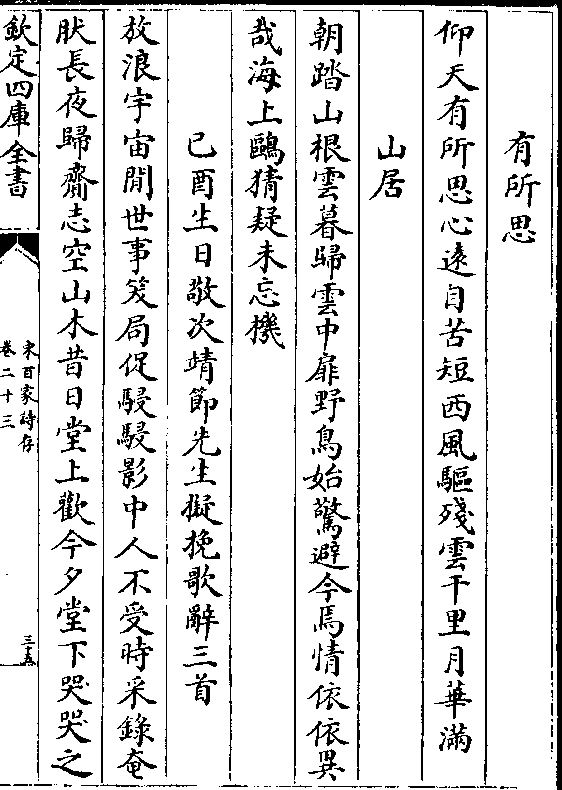 有所思
仰天有所思心遠自苦短西風驅殘雲千里月華滿
山居
朝踏山根雲暮歸雲中扉野鳥始驚避今焉情依依異
哉海上鷗猜疑未忘機
己酉生日敬次靖節先生擬挽歌辭三首
放浪宇宙閒世事笑局促駸駸影中人不受時采錄奄
肰長夜歸齎志空山木昔日堂上歡今夕堂下哭哭之
欽定四庫全書
宋百家詩存
卷二十三
三五